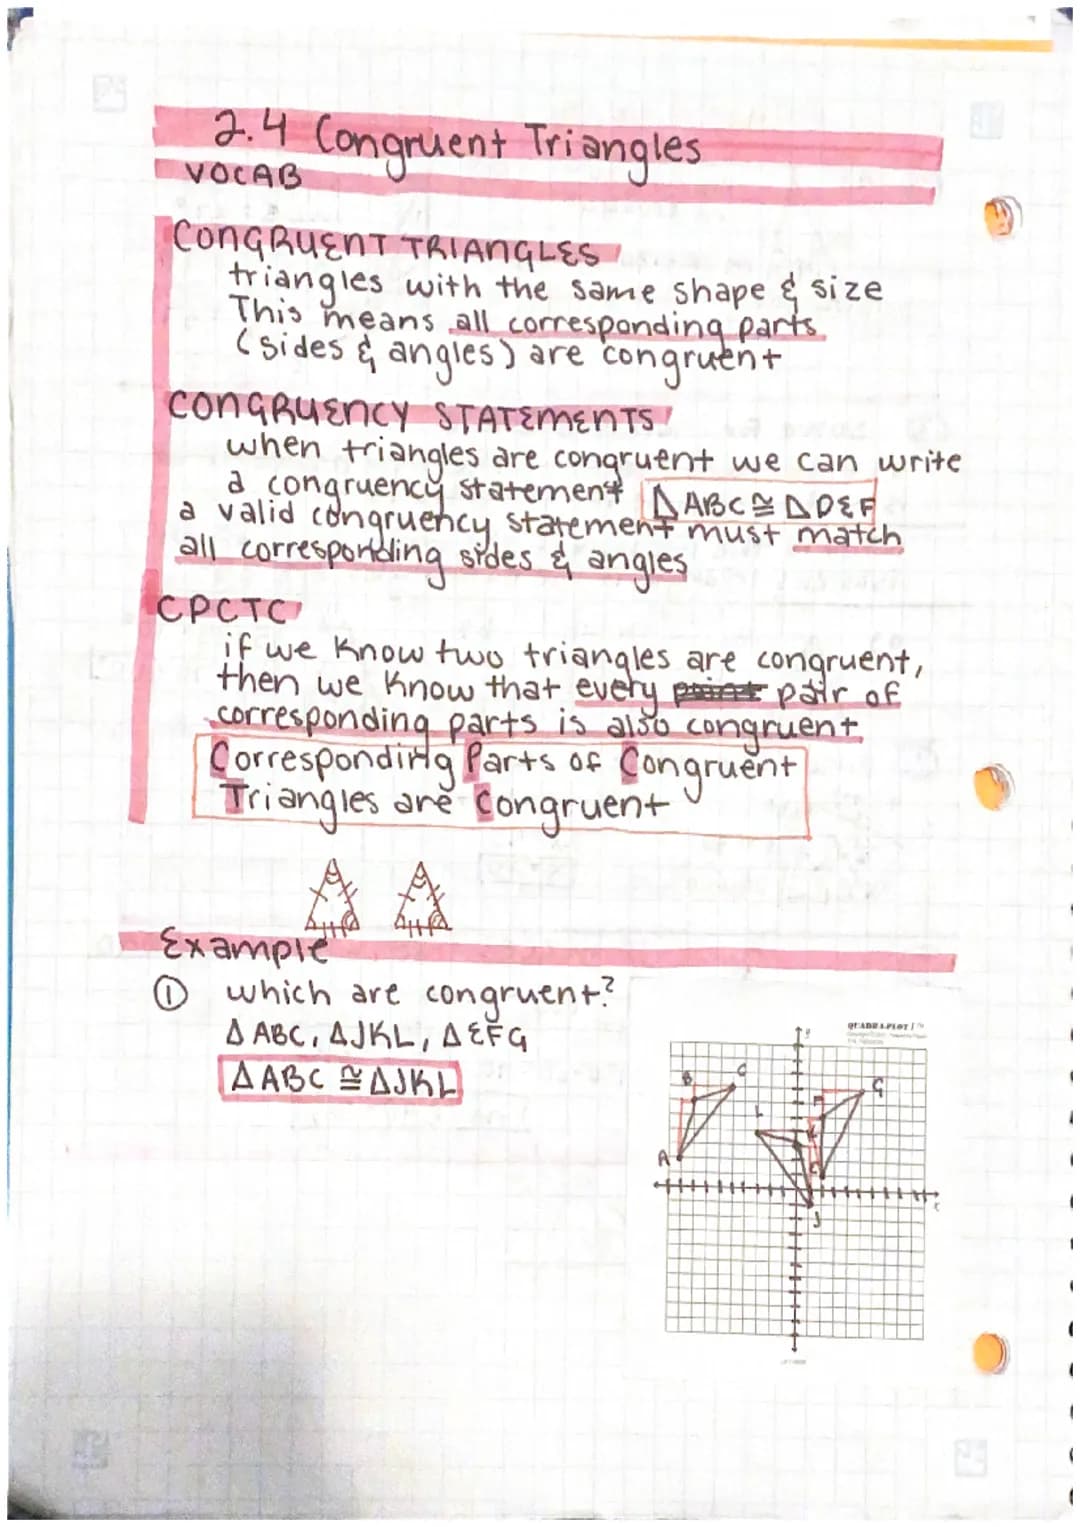 2.4 Congruent Triangles
VOCAB
CONGRUENT TRIANGLES
triangles with the same shape & size
This means all corresponding parts
(sides & angles) are congruent
CONGRUENCY STATEMENTS
when triangles are congruent we can write
a congruency statement △ABC ≅ △DEF
a valid congruency statement must match
all corresponding sides & angles
CPCTC
if we know two triangles are congruent,
then we know that every pair of
corresponding parts is also congruent
Corresponding Parts of Congruent
Triangles are Congruent
Example
① which are congruent?
△ABC, △JKL, △EFG
△ABC ≅ △JKL
QUADRAPLOT
B C G
L F K
A E
J